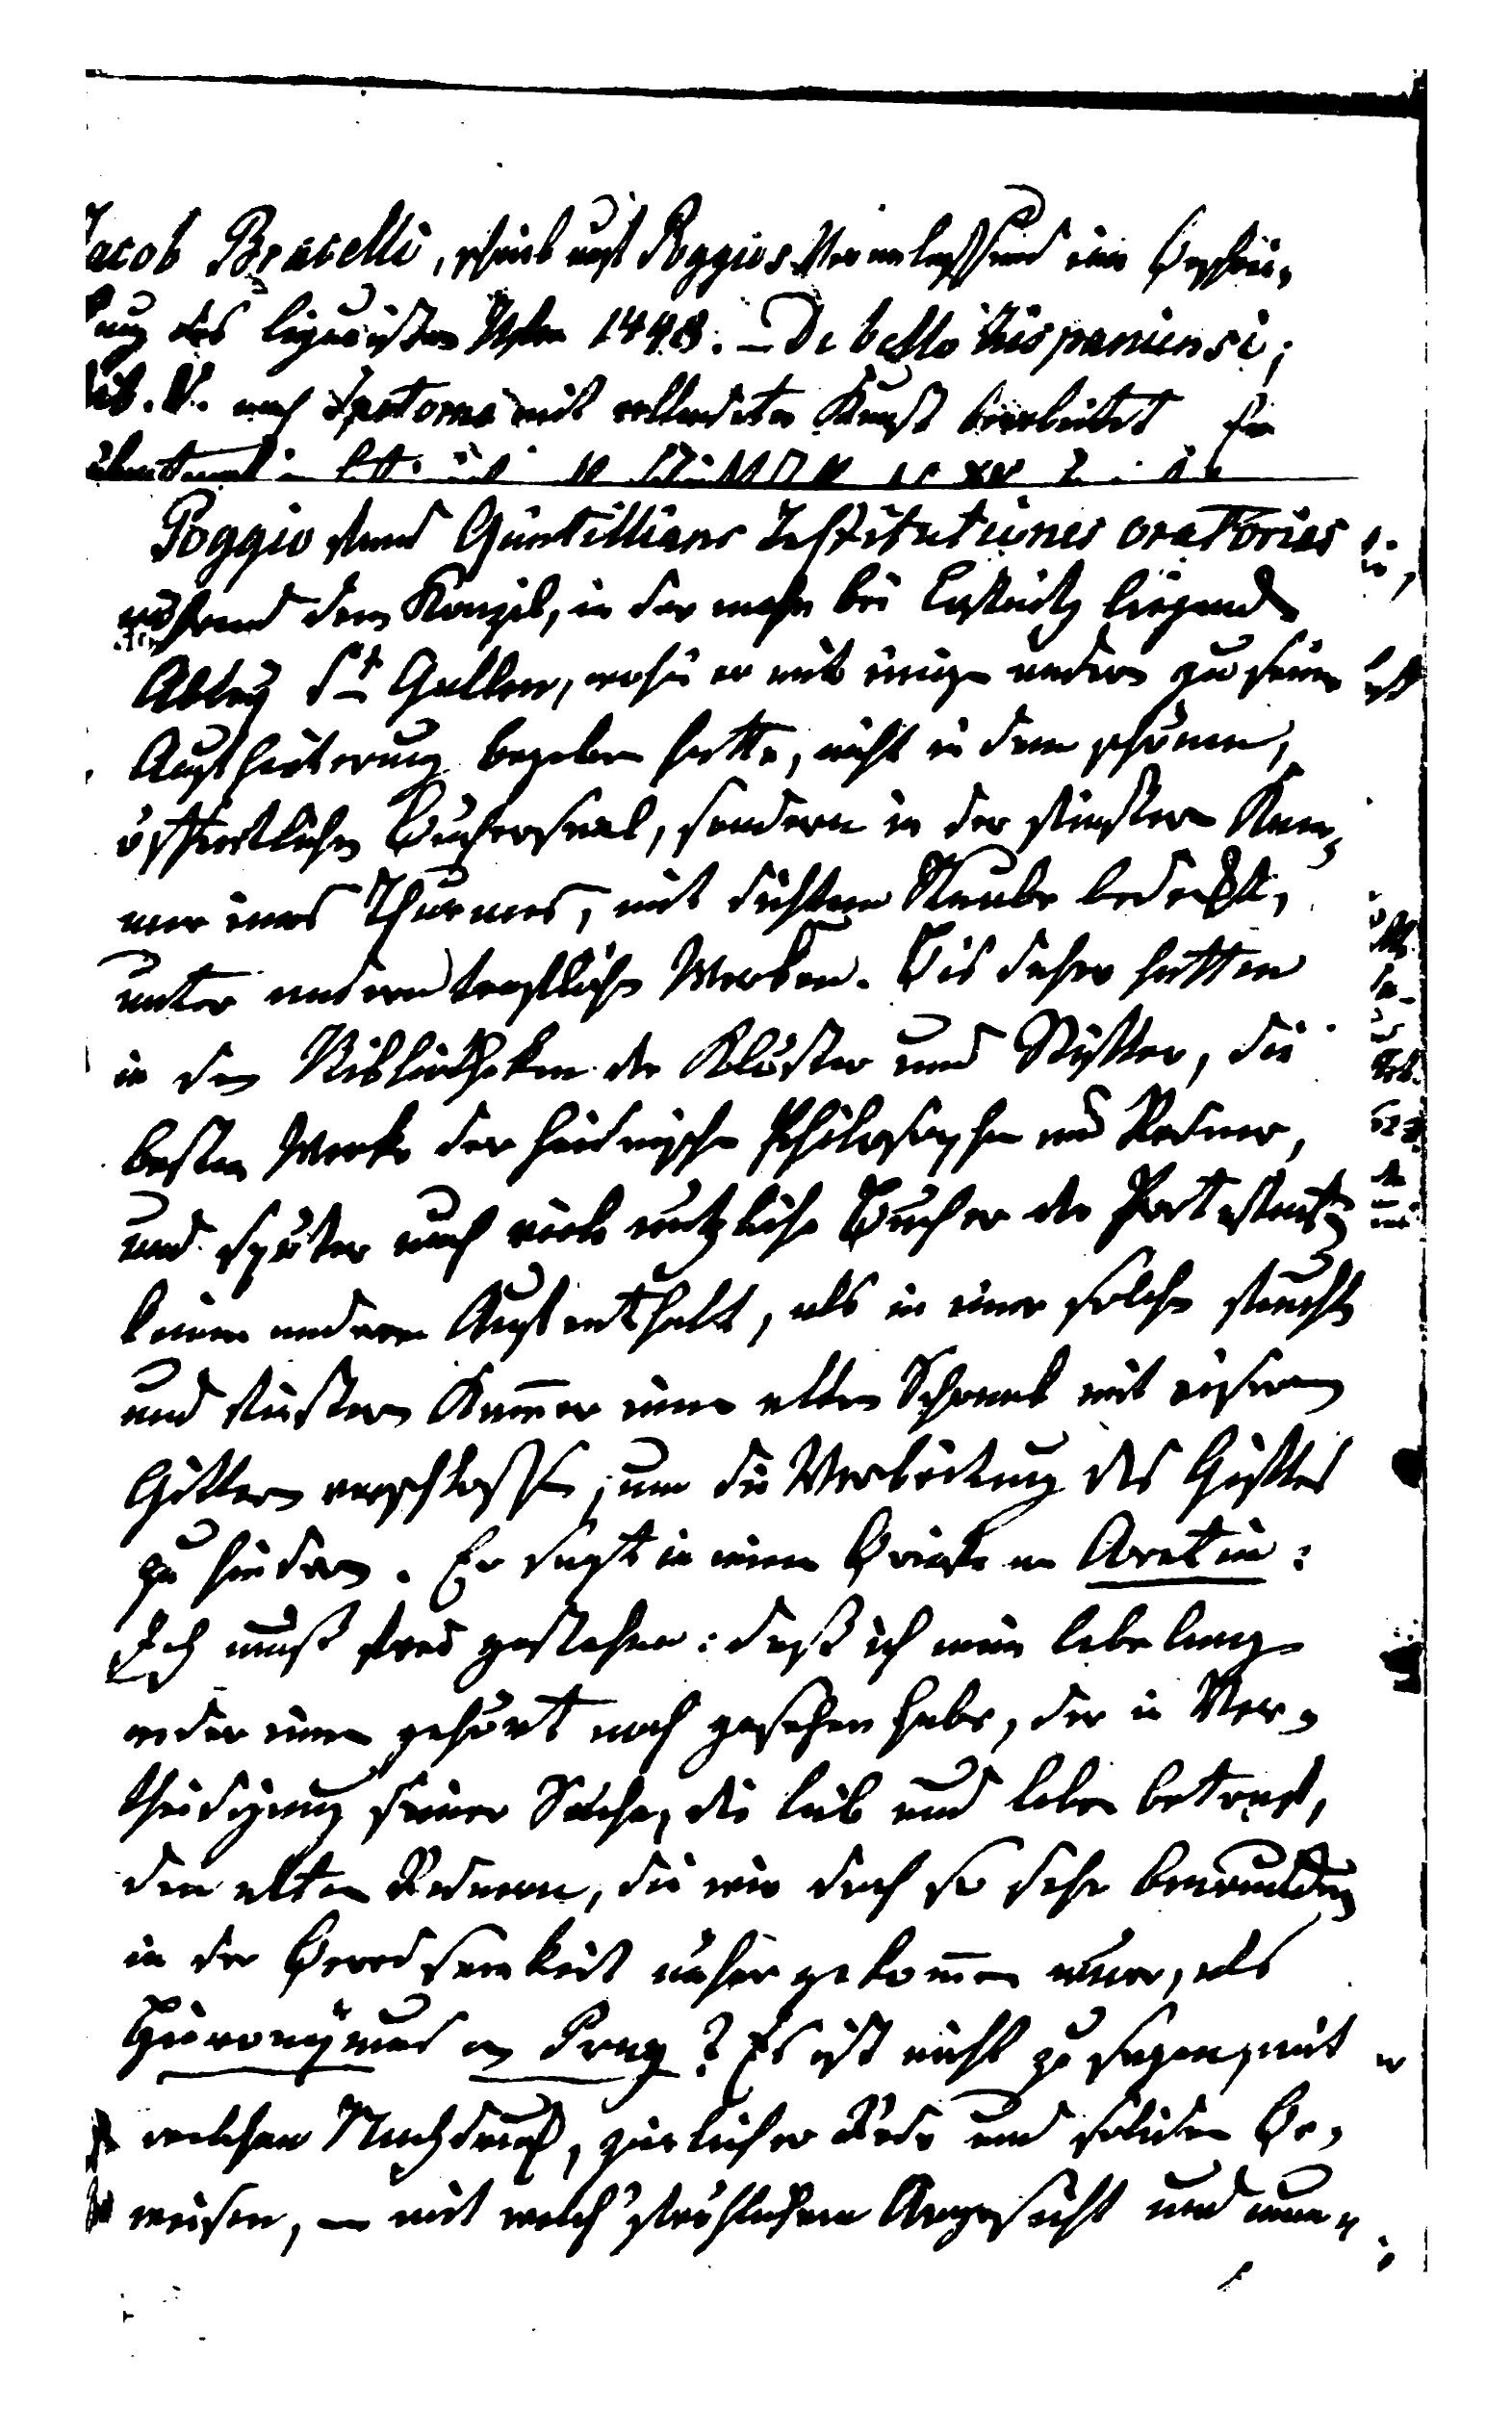 Jacob Bracelli, schrieb auf Poggios Veranlassung eine Beschrei¬
bung des ligurischen 1448. – De bello hispaniensi,
lib. V. nach mit vollendeter Kunst bearbeitet. Er
Poggio fand Quintillians Institutiones oratories
während dem Konzil, in der nahe bei Costnitz liegenden
Abtey St Gallen, wohin er mit einigen andern zu seiner
Aufheiterung begeben hatte, nicht in dem schönen,
öffentlichen Büchersaal, sondern in der finstern Kam¬
mer eines Thurmes, mit dichtem Staube bedeckt,
unter andern trefflichen Werken. Bis daher hatten
in den Bibliotheken der Klöster und Stifter, die
besten Werke der heidnischen Philosophen und Redner,
und später noch viele nützliche Bücher der Protestanten
keinen andern Aufenthalt, als in einer solchen feuchten
und finstern Kammer einen alten Schrank mit eisernen
Gittern verschlossen, um die Verbreitung des Giftes
zu hindern. Er sagt in einem Briefe an Aretin:
Ich muß frei gestehen: daß ich mein lebelang
weder einen gehört noch gesehen habe, der in Ver¬
theidigung seiner Sache, die leib und leben betraf,
den alten Rednern, die wir doch so sehr bewundern
in der Beredsamkeit näher gekommen wäre, als
Hieronymus v Prag? Es ist nicht zu sagen, mit
welchem Nachdruck, zierlicher Rede und soliden Be¬
weisen, – mit welch' fröhlichem Angesicht und